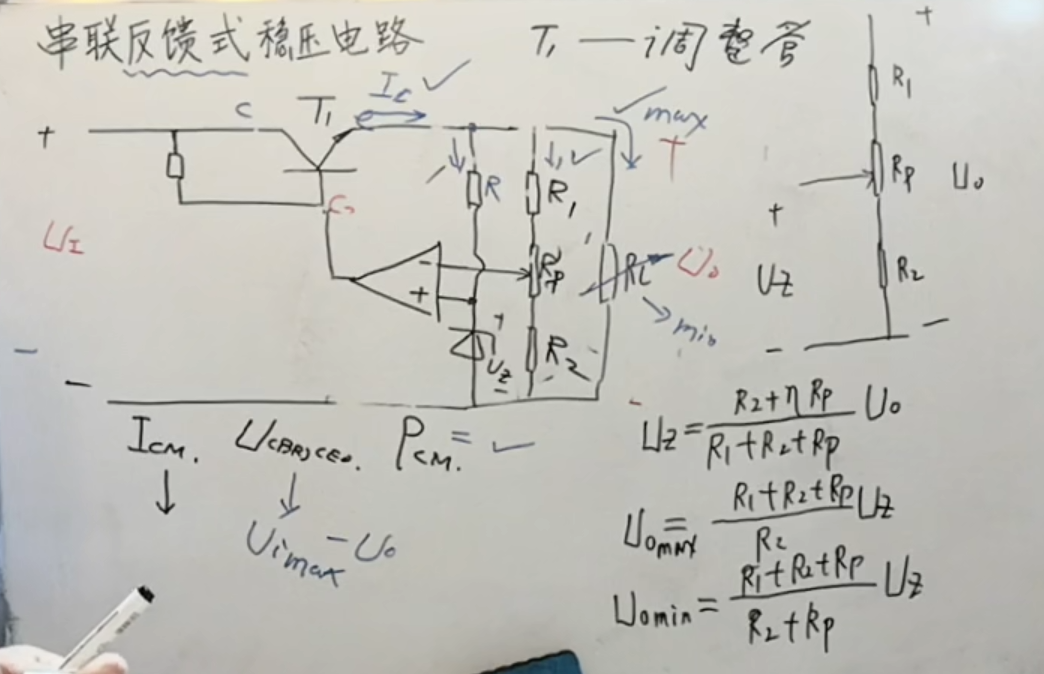 串联反馈式稳压电路
T₁ — 调整管
+
C
T₁
I_C ✓
✓ max
+
R₁
R_P
U₀
R₂
+
U_Z
−
−
U_I
R
R₁
R_P
R_L
U₀
min
−
+
+
U_Z
−
R₂
−
−
I_CM. U_(BR)CEO. P_CM. = ✓
↓ ↓
U_imax − U₀
U_Z = (R₂+ηR_P)/(R₁+R₂+R_P) U₀
U_omax = (R₁+R₂+R_P)/R₂ U_Z
U_omin = (R₁+R₂+R_P)/(R₂+R_P) U_Z